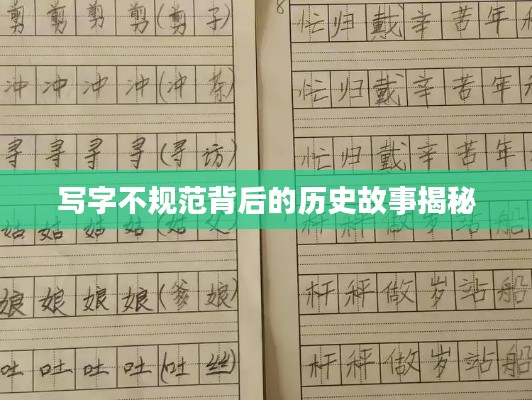 剪 剪 剪 剪 (剪 子)
冲 冲 冲 冲 (冲 茶)
寻 寻 寻 寻 (寻 访)
写字不规范背后的历史故事揭秘
姑 姑 姑 姑
娘 娘 娘 娘 (爹 娘)
吐 吐 吐 吐 (吐 丝)
8
忙 归 戴 辛 苦 年
忙 归 戴 辛 苦 年
忙 归 戴 辛 苦 年
杆 秤 做 岁 站 船
杆 秤 做 岁 站 船
杆 秤 做 岁 站 船